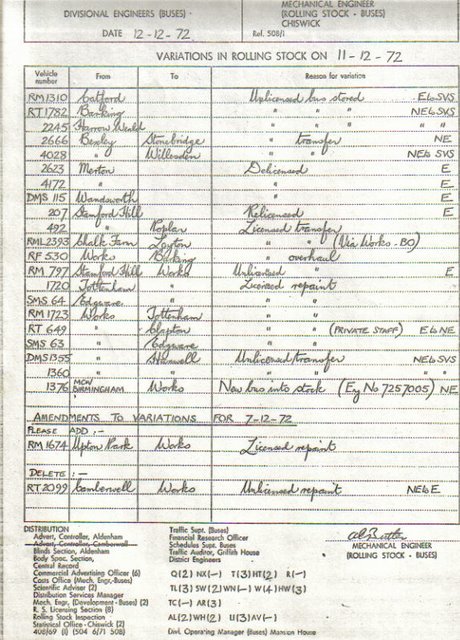 DIVISIONAL ENGINEERS (BUSES)
MECHANICAL ENGINEER
(ROLLING STOCK - BUSES)
CHISWICK
DATE 12-12-72 Ref. 508/1
VARIATIONS IN ROLLING STOCK ON 11-12-72
Vehicle number From To Reason for variation
RM1310 Catford Unlicensed bus stored E to SVS
RT1782 Barking " " " NE to SVS
2245 Harrow Weald " " " " "
2666 Bexley Stonebridge " transfer NE
4028 " Willesden " " NE to SVS
2623 Merton Delicensed E
4172 " " E
DMS 115 Wandsworth " E
207 Stamford Hill Relicensed E
492 " Poplar Licensed transfer
RML2393 Chalk Farm Leyton " " (Via Works - BO)
RF 530 Works Barking " overhaul
RM 797 Stamford Hill Works Unlicensed " E
1720 Tottenham " Licensed repaint
SMS 64 Edgware " " "
RM 1723 Works Tottenham " "
RT 649 " Clapton " " (PRIVATE STAFF) E to NE
SMS 63 " Edgware " "
DMS1355 " Hanwell Unlicensed transfer NE to SVS
1360 " " " " "
1376 MCW BIRMINGHAM Works New bus into stock (Eg No 7257005) NE
AMENDMENTS TO VARIATIONS FOR 7-12-72
PLEASE ADD :-
RM 1674 Upton Park Works Licensed repaint
DELETE :-
RT2099 Camberwell Works Unlicensed repaint NE to E
DISTRIBUTION
Advert, Controller, Aldenham
Advert, Controller, Camberwell
Blinds Section, Aldenham
Body Spec. Section,
Central Record
Commercial Advertising Officer (6)
Costs Office (Mech. Engr.-Buses)
Scientific Adviser (2)
Distribution Services Manager
Mech. Engr. (Development - Buses) (2)
R. S. Licensing Section (8)
Rolling Stock Inspection
Statistical Office - Chiswick (2)
408/69 (1) (504 6/71 508)
Traffic Supt. (Buses)
Financial Research Officer
Schedules Supt. Buses
Traffic Auditor, Griffith House
District Engineers
Q(2) NX(-) T(3) HT(2) R(-)
TL(3) SW(2) WN(-) W(4) HW(3)
TC(-) AR(3)
AL(2) WH(2) U(3) AV(-)
Divl. Operating Manager (Buses) Mansion House
MECHANICAL ENGINEER
(ROLLING STOCK - BUSES)